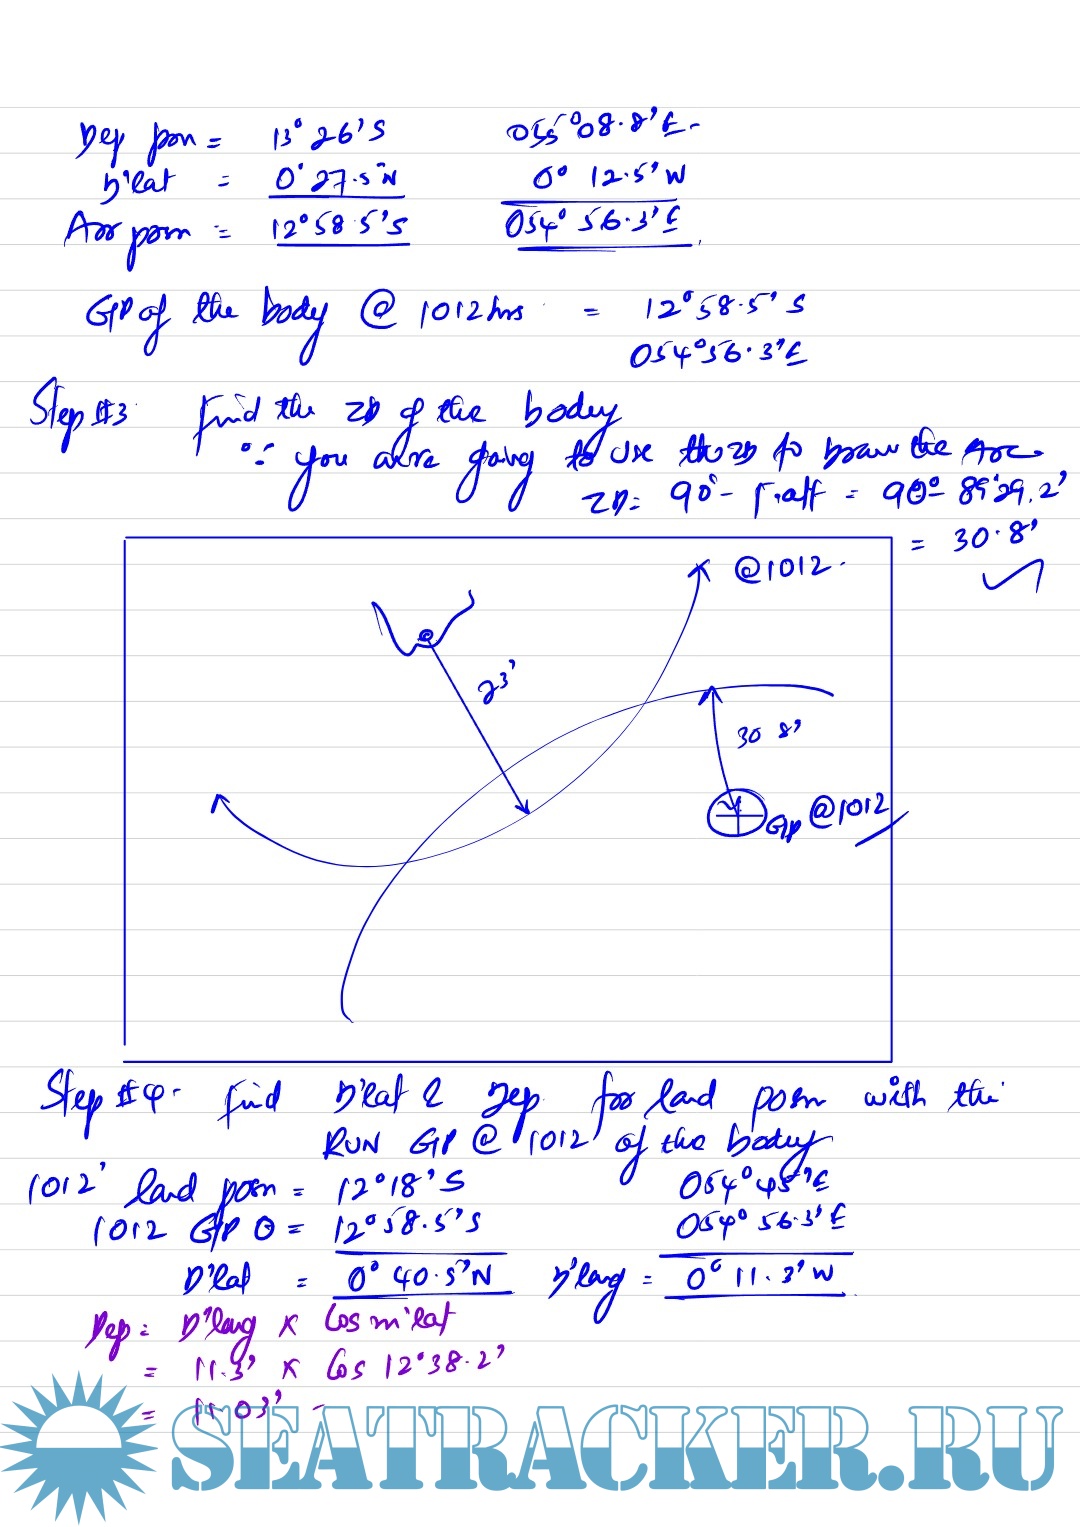 Dep posn = 13° 26' S 055° 08.8' E.
D'lat = 0° 27.5' N 0° 12.5' W
Arr posn = 12° 58.5' S 054° 56.3' E
GP of the body @ 1012 hrs = 12° 58.5' S
054° 56.3' E
Step #3 find the ZD of the body
∵ you are going to use the ZD to draw the Arc.
ZD = 90° - T.alt = 90° - 89° 29.2'
= 30.8'
@1012.
23'
30.8'
GP @1012
Step #4. find D'lat & Dep. for land posn with the
RUN GP @ 1012 of the body
1012' land posn = 12° 18' S 054° 45' E
1012 GP ʘ = 12° 58.5' S 054° 56.3' E
D'lat = 0° 40.5' N D'long = 0° 11.3' W
Dep = D'long x Cos m'lat
= 11.3' x Cos 12° 38.2'
= 11.03'
SEATRACKER.RU